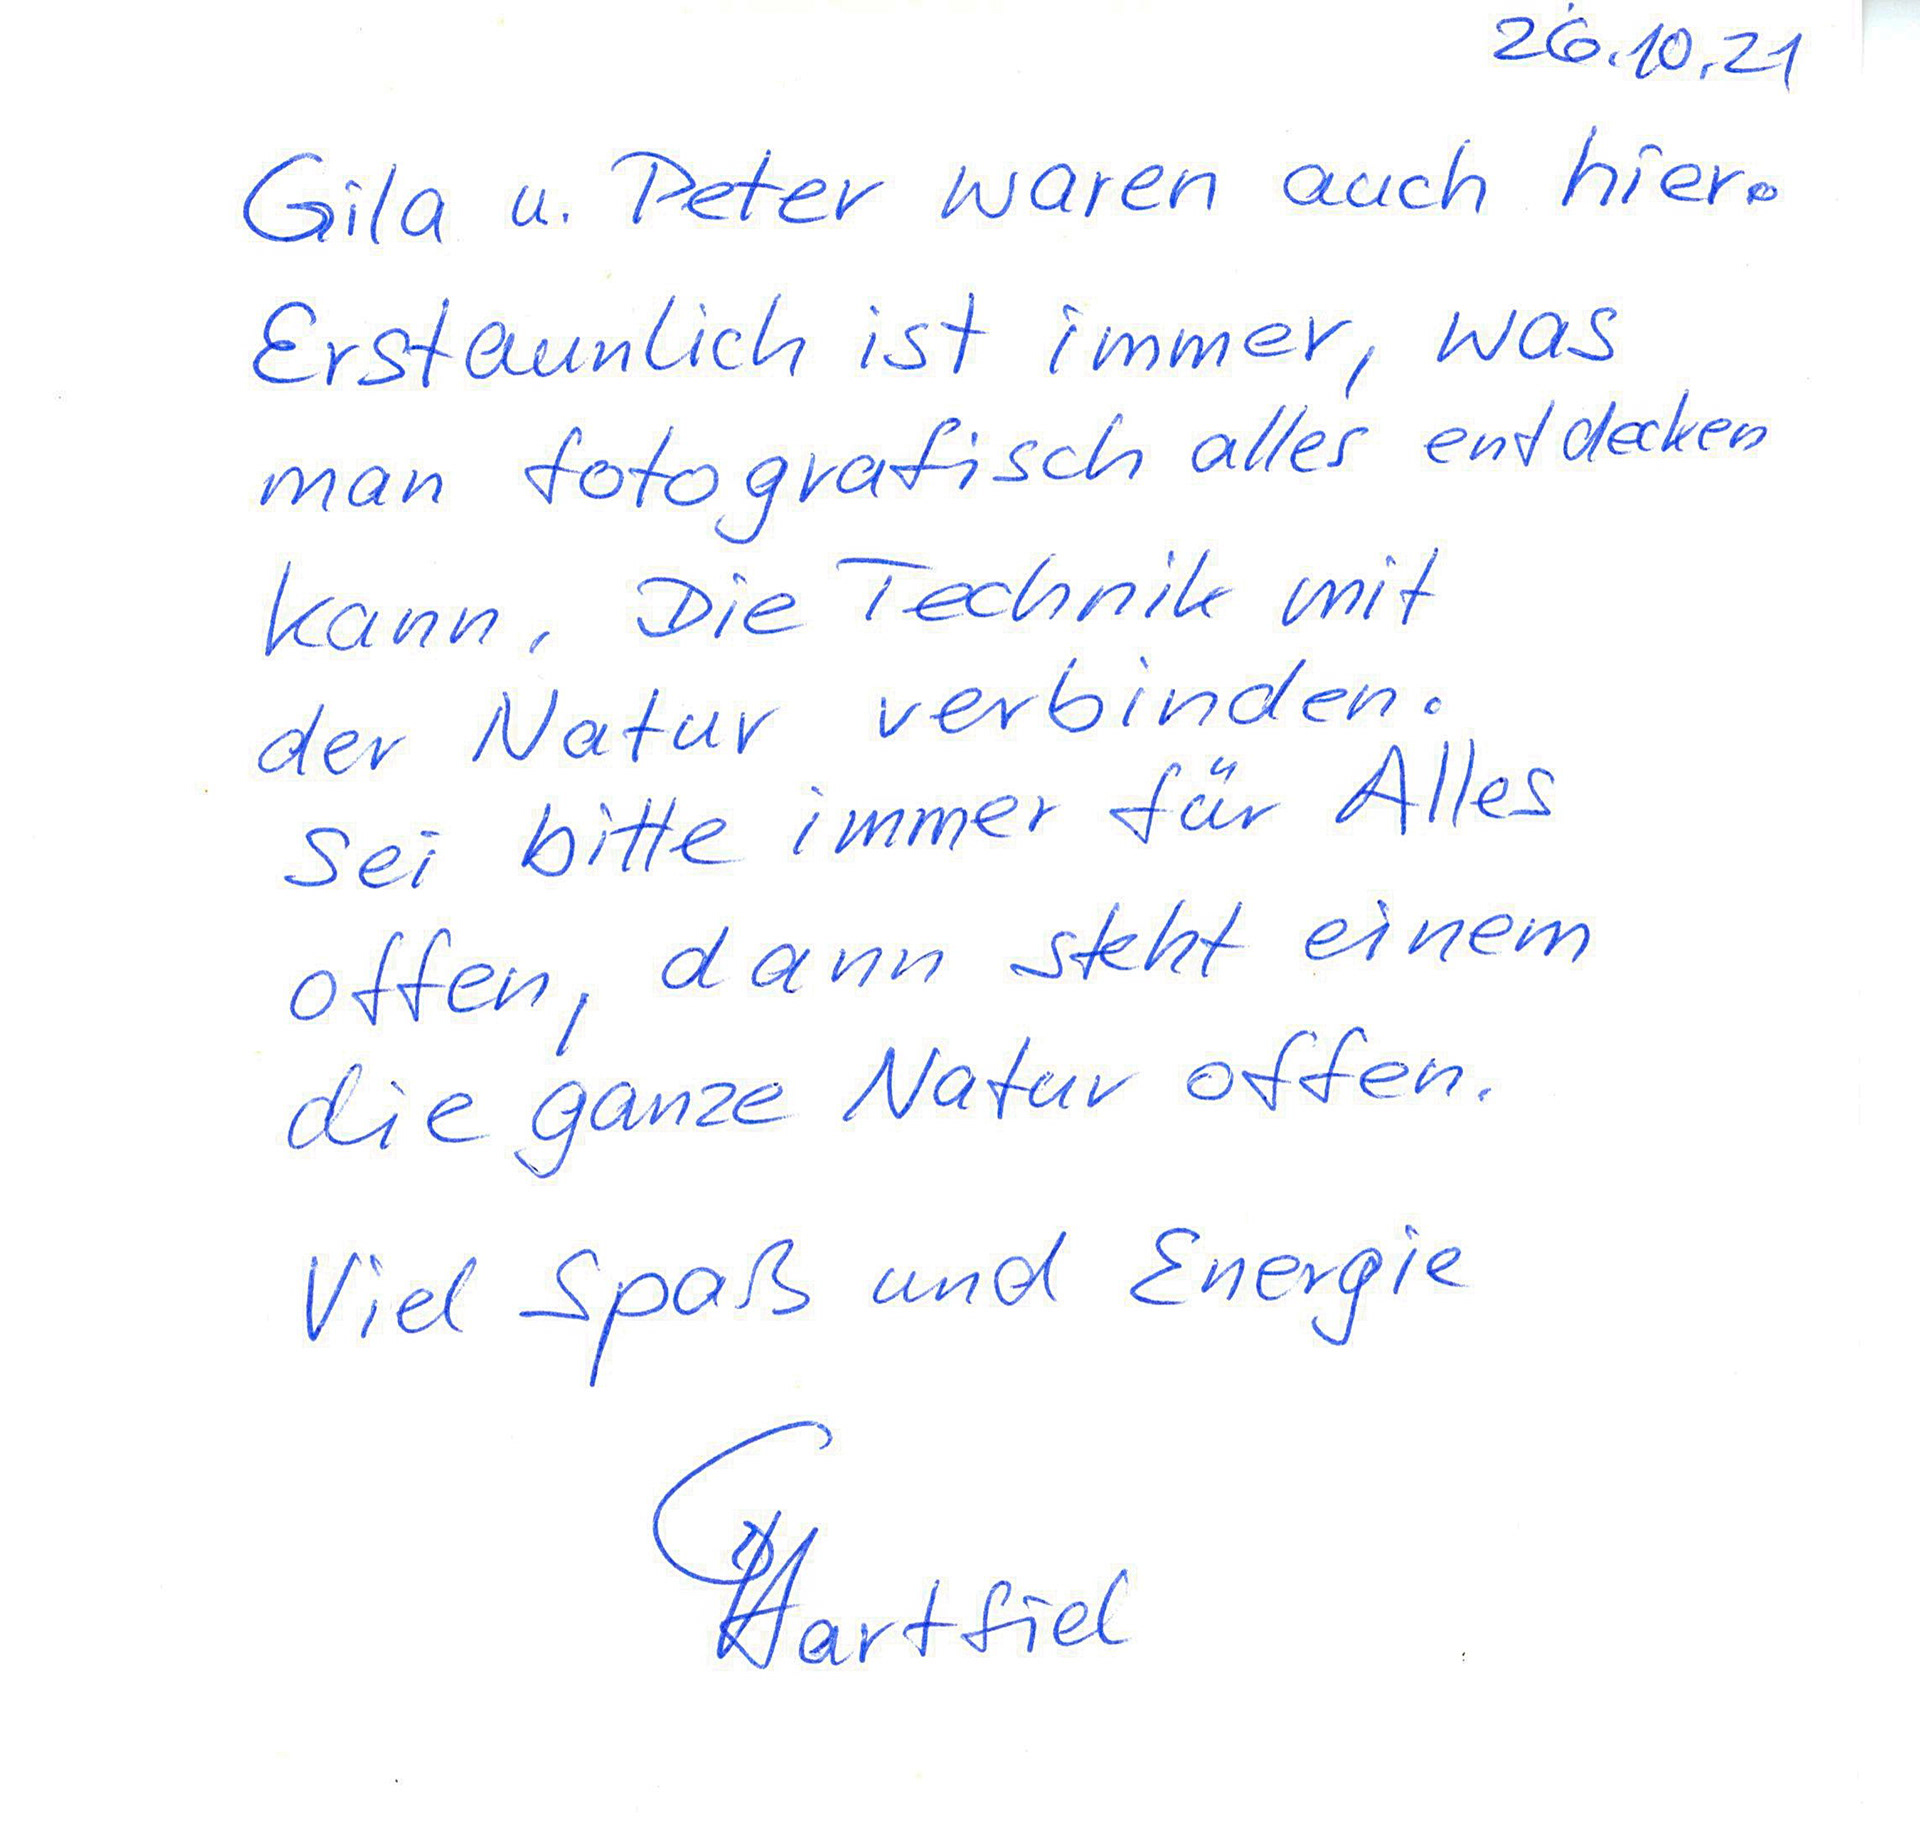 26.10.21
Gila u. Peter waren auch hier.
Erstaunlich ist immer, was
man fotografisch alles entdecken
kann. Die Technik mit
der Natur verbinden.
Sei bitte immer für Alles
offen, dann steht einem
die ganze Natur offen.
Viel Spaß und Energie
Hartfiel